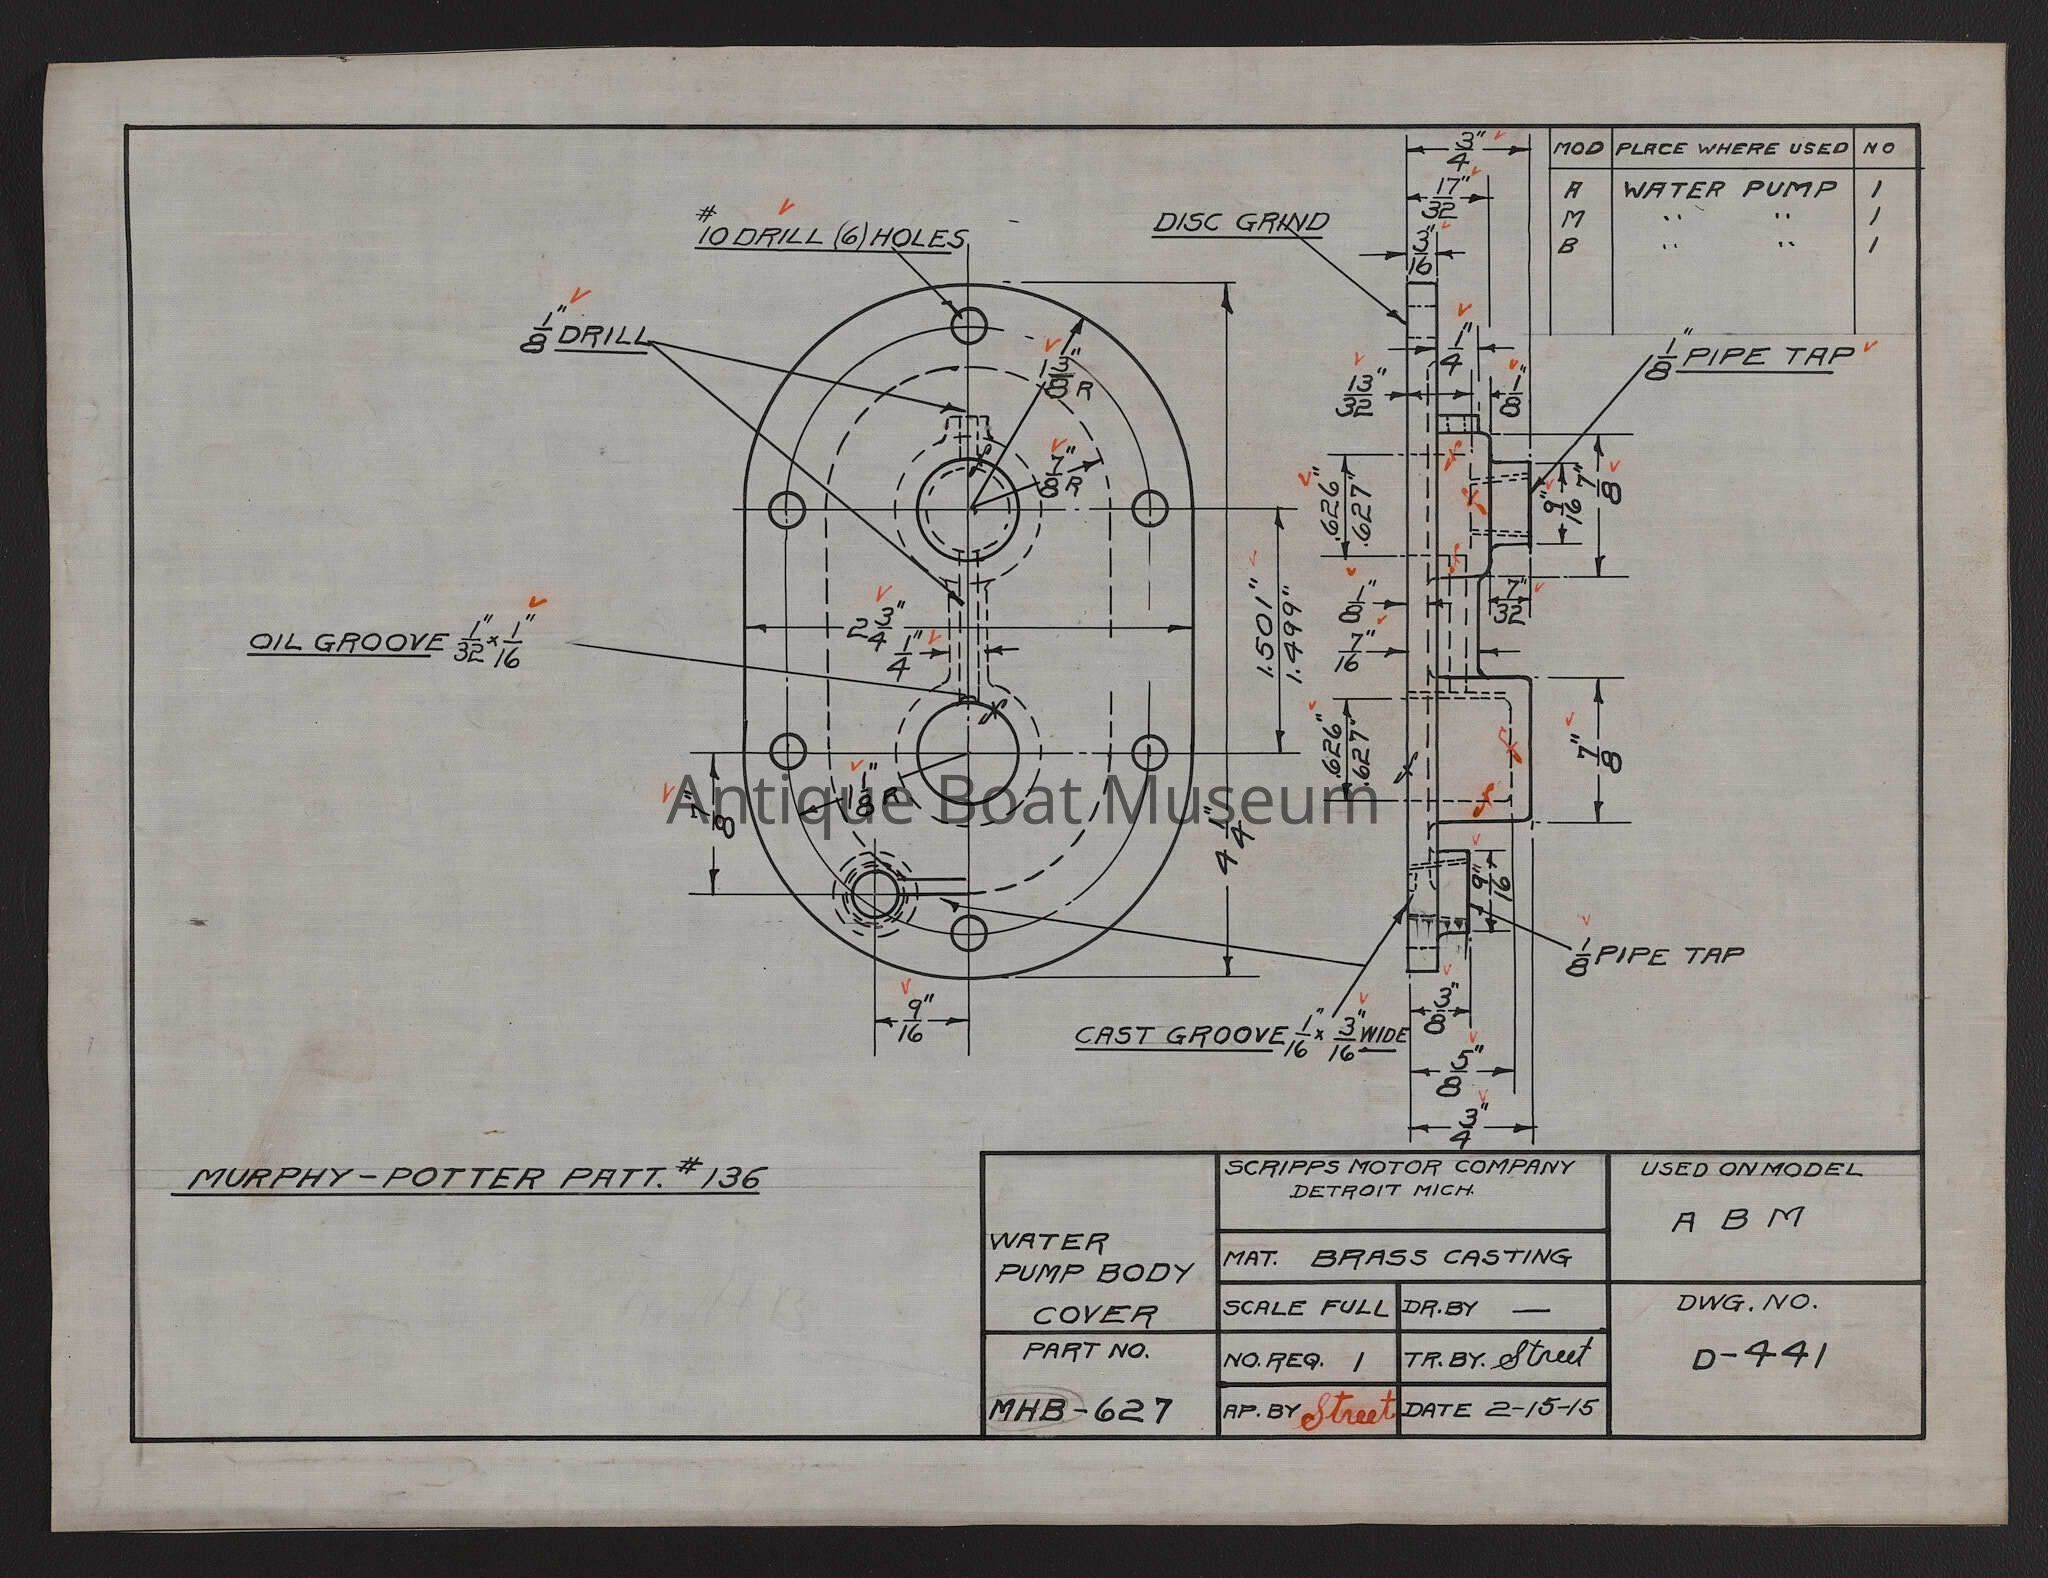 MOD PLACE WHERE USED NO
A WATER PUMP 1
M " " 1
B " " 1
3/4"
17/32"
3/16"
#10 DRILL (6) HOLES
DISC GRIND
1/8" DRILL
1 3/8" R
7/8" R
1/4"
13/32"
1/8"
1/8" PIPE TAP
.626"
.627"
9/16"
7/8"
OIL GROOVE 1/32" x 1/16"
2 3/4"
1/4"
1.501"
1.499"
1/8"
7/16"
7/32"
.626"
.627"
7/8"
7/8"
1 1/8" R
4 1/4"
9/16"
1/8 PIPE TAP
9/16"
CAST GROOVE 1/16" x 3/16" WIDE
3/8"
5/8"
3/4"
Antique Boat Museum
MURPHY-POTTER PATT. #136
WATER
PUMP BODY
COVER
PART NO.
MHB-627
SCRIPPS MOTOR COMPANY
DETROIT MICH.
MAT. BRASS CASTING
SCALE FULL DR.BY —
NO.REQ. 1 TR.BY. Street
AP.BY Street DATE 2-15-15
USED ON MODEL
A B M
DWG. NO.
D-441